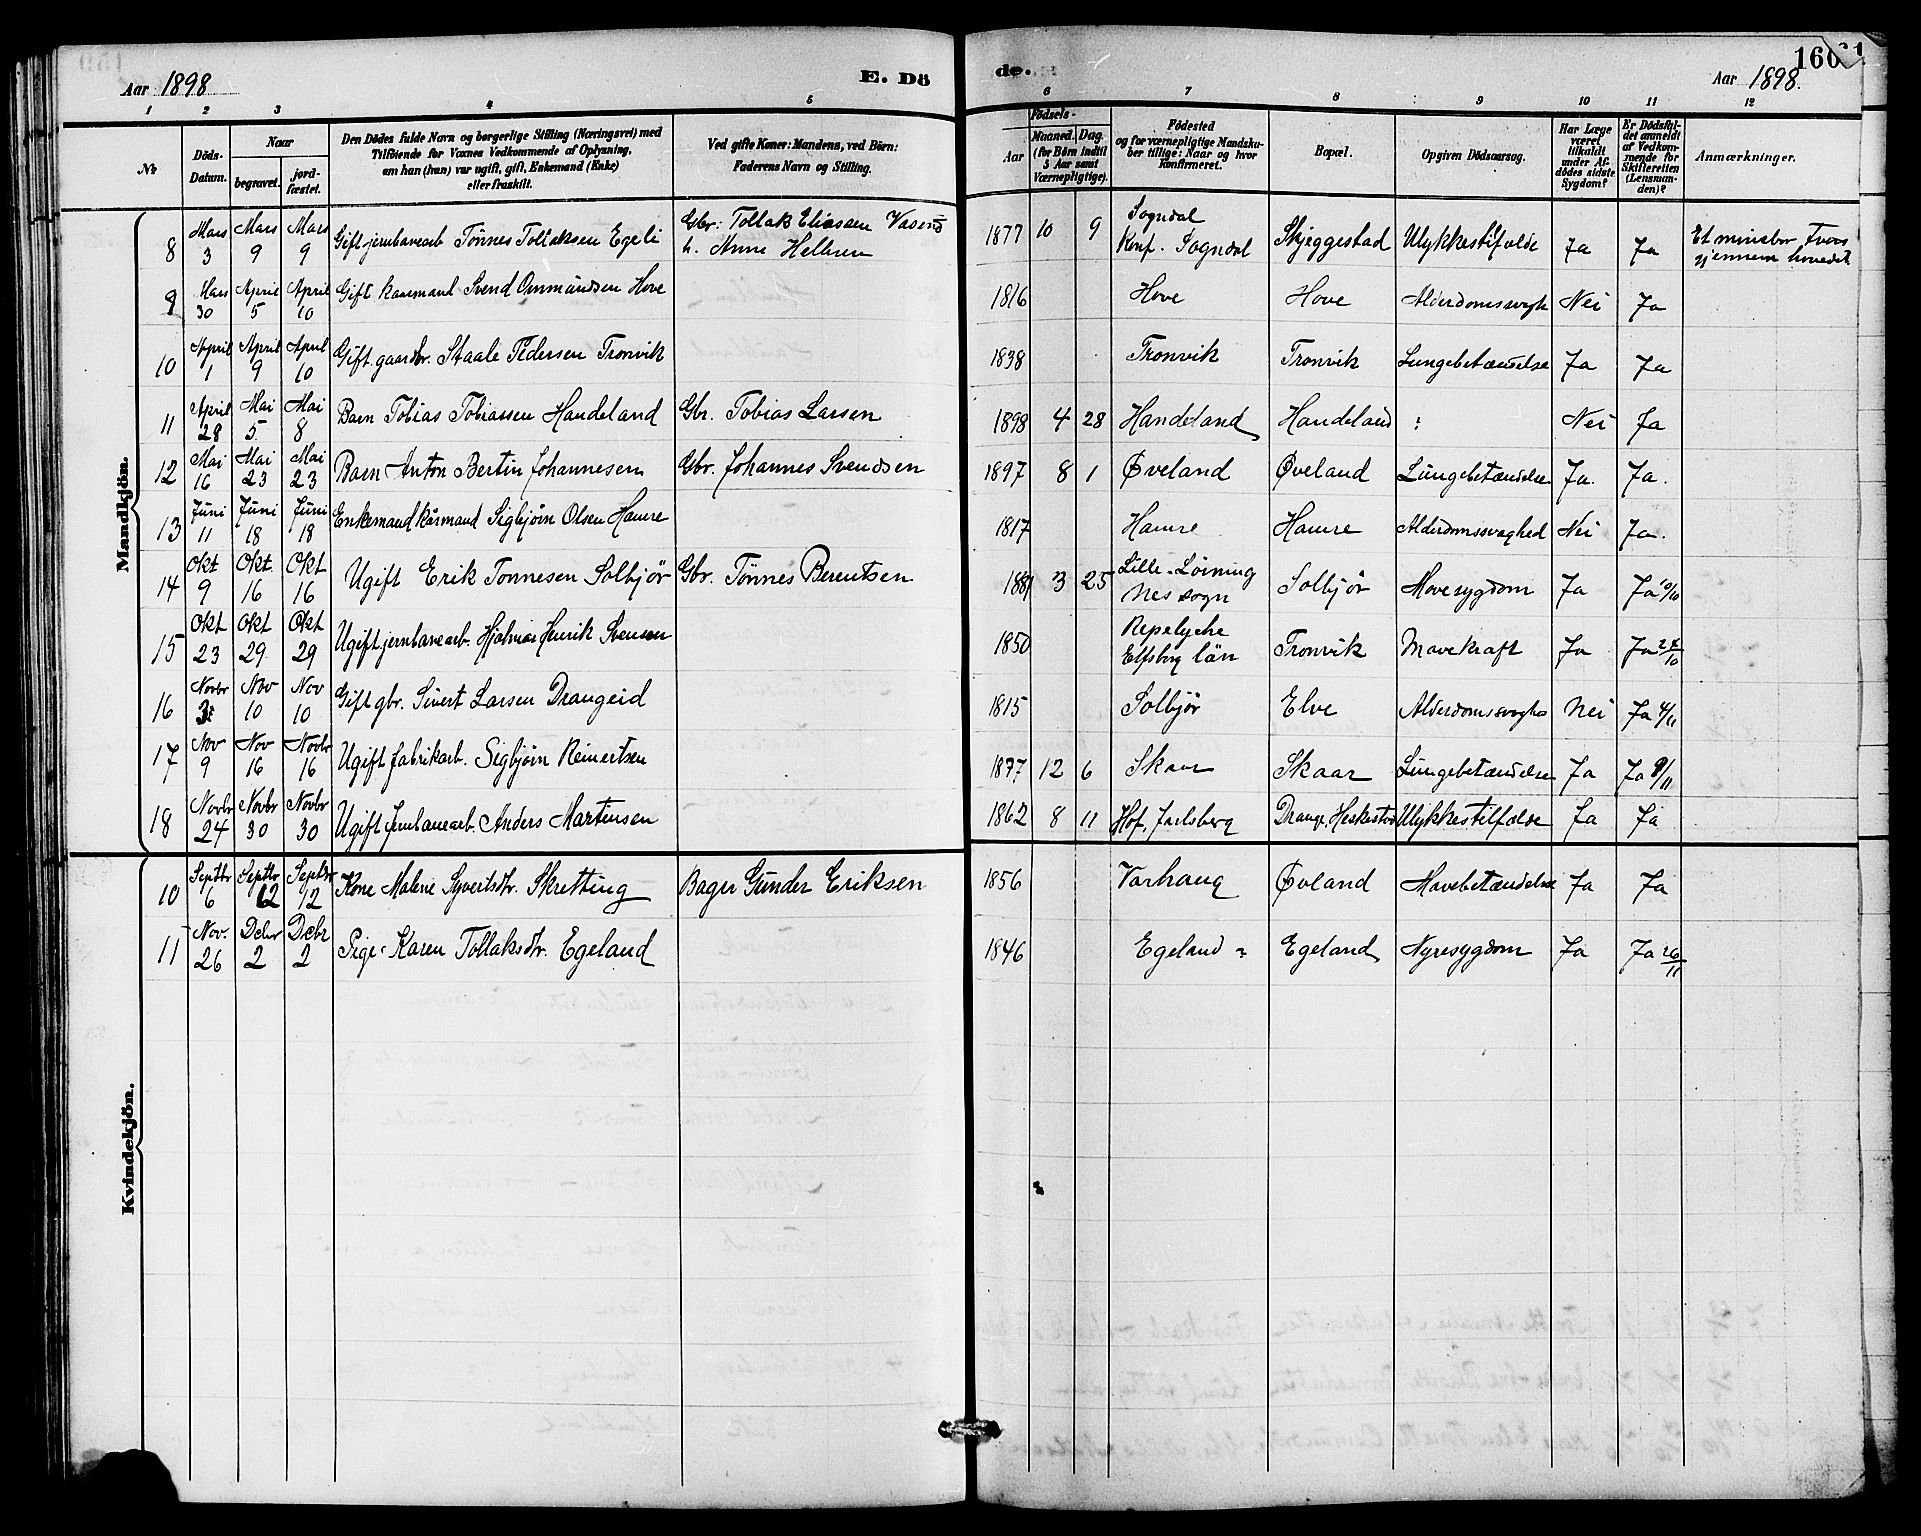 Aar 1898
E. Dö
de.
160
Aar 1898.
1 2 3 4 5 6 7 8 9 10 11 12
No
Döds-Datum.
Naar
begravet.
jord-fæstet.
Den Dödes fulde Navn og borgerlige Stilling (Næringsvei) med
Tilföiende for Voxnes Vedkommende af Oplysning,
om han (hun) var ugift, gift, Enkemand (Enke)
eller fraskilt.
Ved gifte Koner: Mandens, ved Börn:
Faderens Navn og Stilling.
Födsels-
Aar
Maaned. Dag.
(for Börn indtil
5 Aar samt
Værnepligtige).
Födested
og for værnepligtige Mandsku-
ber tillige: Naar og hvor
Konfirmeret.
Bopæl.
Opgiven Dödsaarsag.
Har Læge
været
tilkaldt
under Af-
dödes sidste
Sygdom?
Er Dödsfal-
det anmeldt
af Vedkom-
mende for
Skifteretten
(Lensman-
den)?
Anmærkninger.
Mandkjön.
8 Mars 3 Mars 9 Mars 9 Gift jernbanearb Tönnes Tollaksen Egeli Gbr: Tollak Eliassen 1877 10 9 Sogndal Konf. Sogndal Skjeggestad Ulykkestilfælde Ja Ja Et minebor tvers gjennem hovedet
9 Mars 30 April 5 April 10 Gift kaarmand Svend Ommundsen Hove 1816 Hove Hove Alderdomssvagh Nei Ja
10 April 1 April 9 April 10 Gift gaardbr. Staale Pedersen Tronvik 1838 Tronvik Tronvik Lungebetændelse Ja Ja
11 April 28 Mai 5 Mai 8 Barn Tobias Tobiassen Handeland Gbr. Tobias Larsen 1898 4 28 Handeland Handeland : Nei Ja
12 Mai 16 Mai 23 Mai 23 Barn Anton Bertin Johannesen Gbr. Johannes Svendsen 1897 8 1 Øveland Øveland Lungebetændelse Ja. Ja.
13 Juni 11 Juni 18 Juni 18 Enkemand kårmand Sigbjørn Olsen Hamre 1817 Hamre Hamre Alderdomssvaghed Nei Ja.
14 Okt 9 Okt. 16 Okt 16 Ugift Erik Tonnesen Solbjør Gbr. Tönnes Berentsen 1881 3 25 Lille-Løining Nes sogn Solbjør Mavesygdom Ja Ja 10/10
15 Okt 23 Okt 29 Okt 29 Ugift jernbanearb. Hjalmar Henrik Svensen 1850 Elfsborg län Tronvik Mavekraft Ja Ja 24/10
16 Novbr 3 Nov 10 Nov 10 Gift gbr. Sivert Larsen Drangeid 1815 Solbjør Elve Alderdomssvaghe Nei Ja 4/11
17 Nov 9 Nov 16 Novbr 16 Ugift fabrikarb. Sigbjørn Reinertsen 1877 12 6 Skaar Skaar Lungebetændelse Ja Ja 9/11
18 Novbr 24 Novbr 30 Novbr 30 Ugift Jernbanearb. Anders Martinsen 1862 8 11 Hof, Jarlsberg Drange, Heskestad Ulykkestilfælde Ja Ja
Kvindekjön.
10 Septbr 6 Septbr 12 Septbr 12 Kone Malene Syvertsdtr. Skretting Bager Gunder Eriksen 1856 Varhaug Øvland Mavebetændelse Ja Ja
11 Nov. 26 Debr 2 Debr 2 Pige Karen Tollaksdtr. Egeland 1846 Egeland Egeland Nyresygdom Ja Ja 26/11